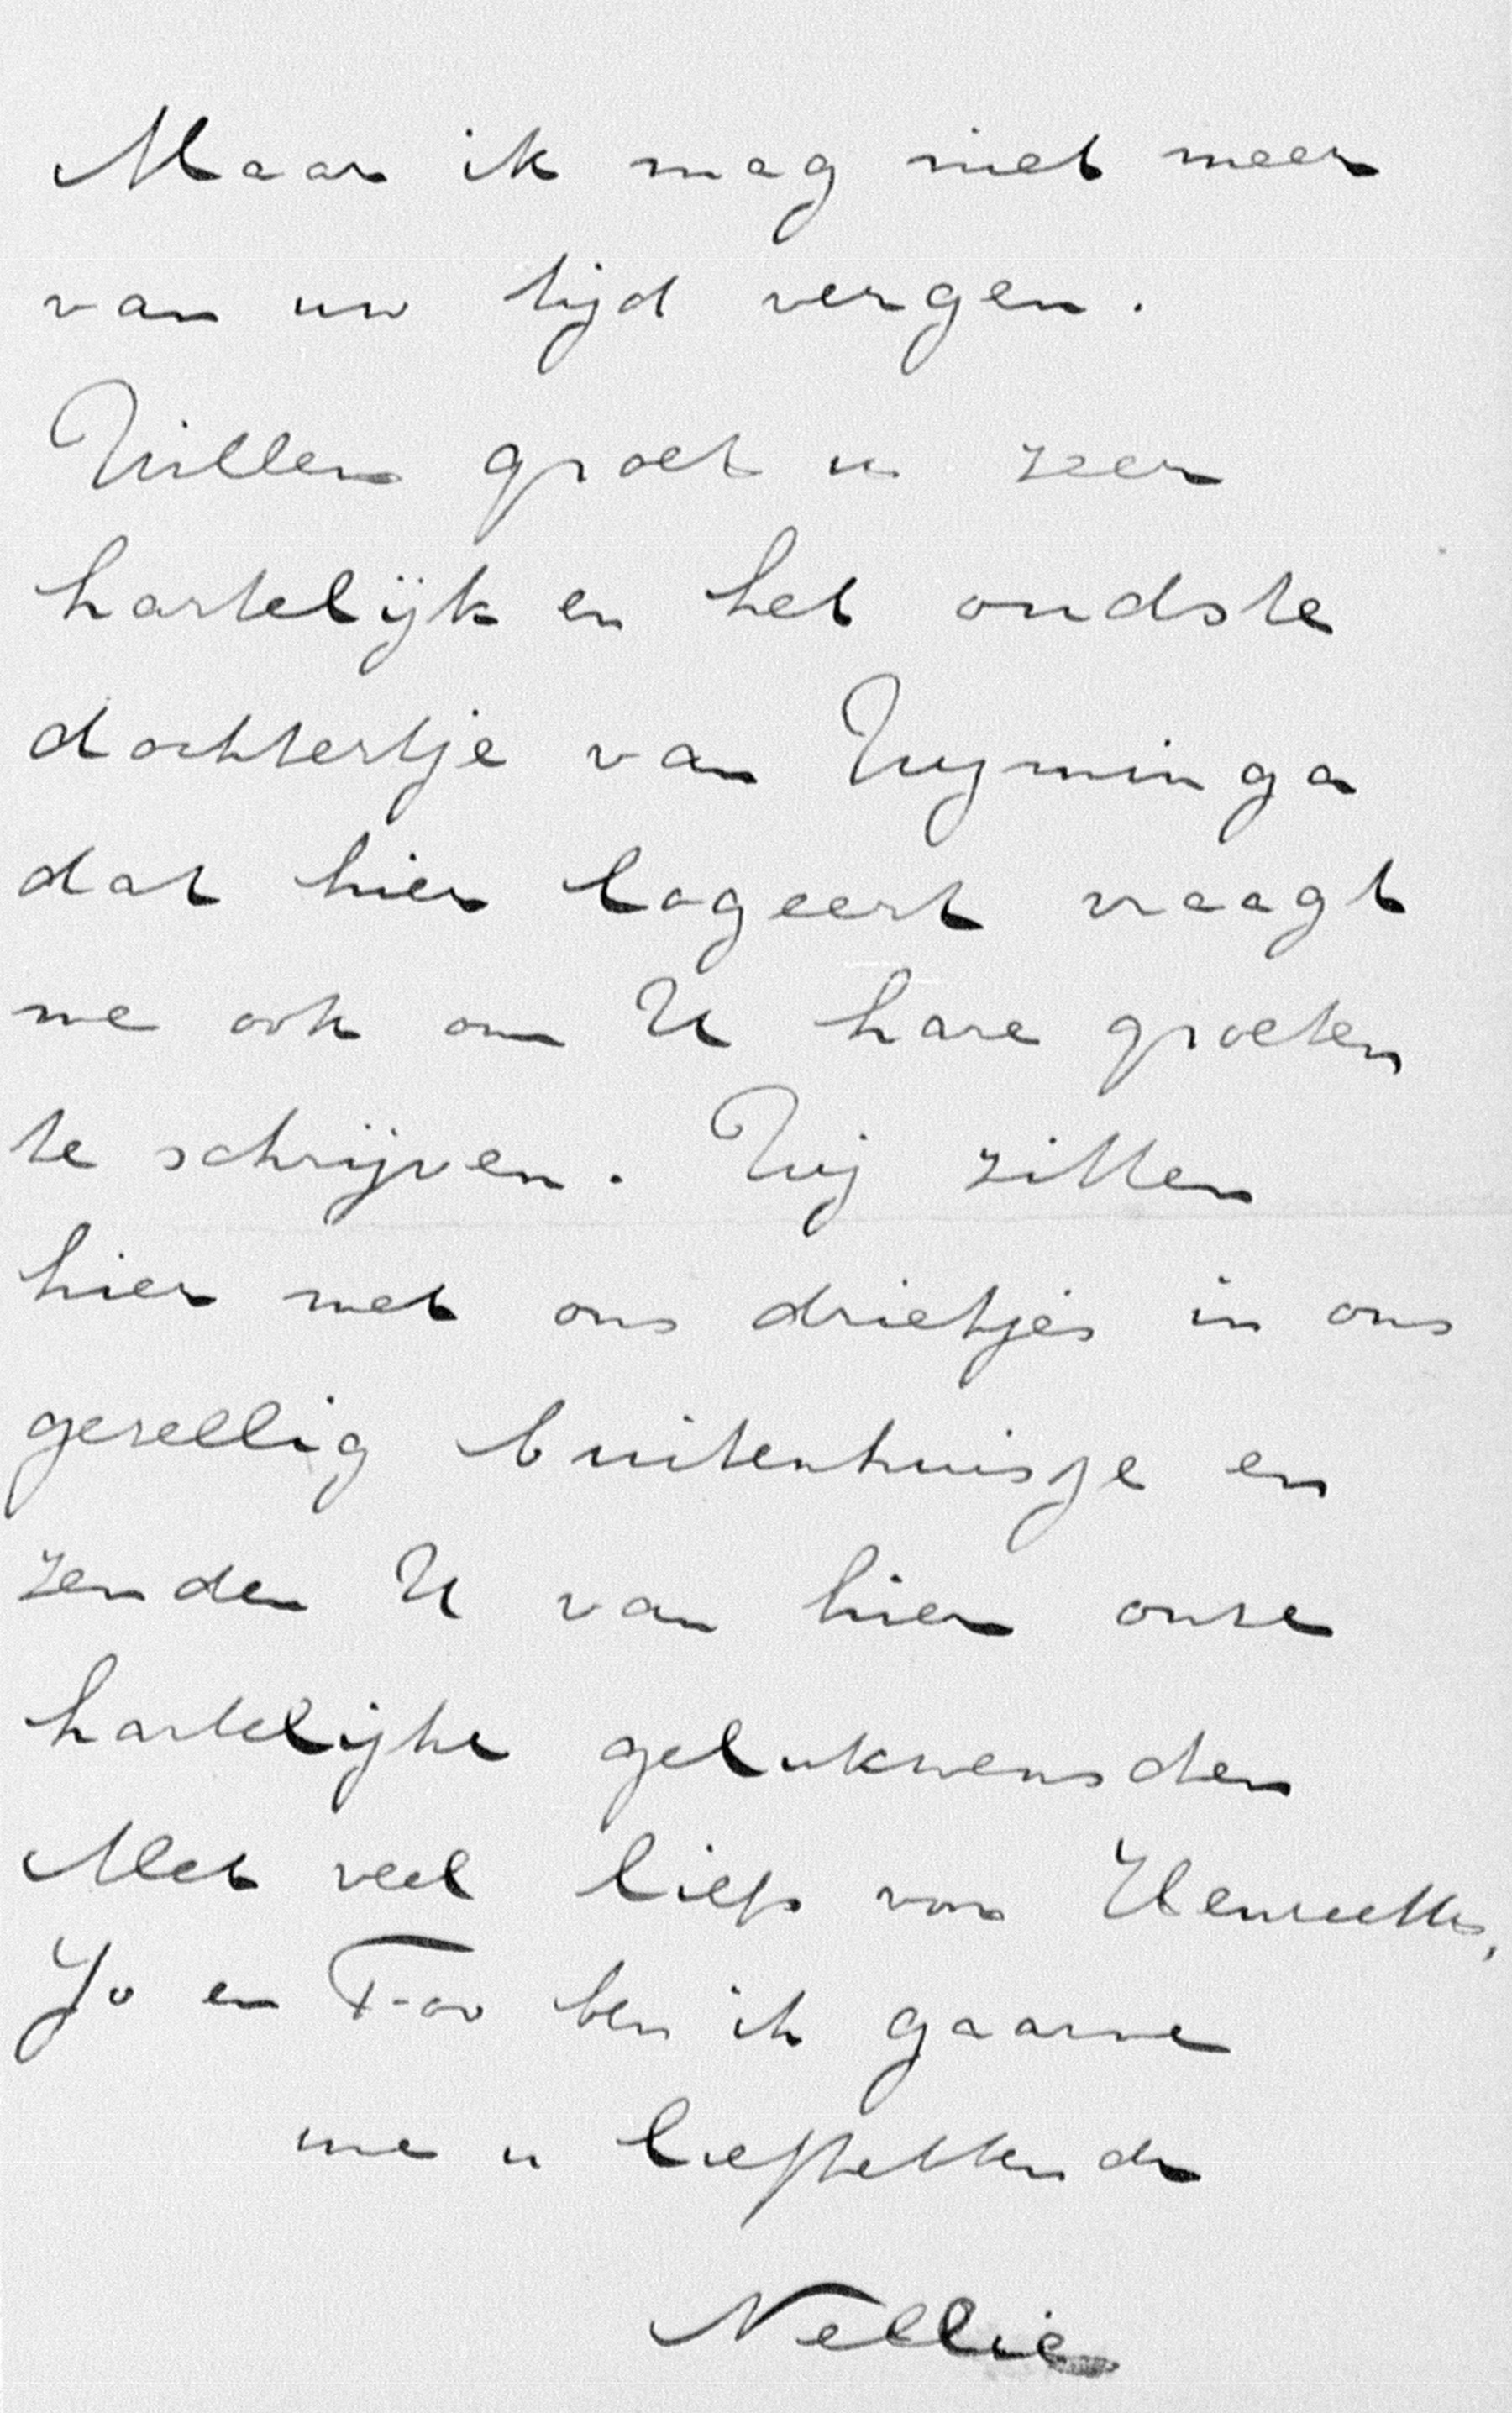 Maar ik mag niet meer
van uw tijd vergen.
Willem groet u zeer
hartelijk en het oudste
dochtertje van Wijminga
dat hier logeert vraagt
me ook om U hare groeten
te schrijven. Wij zitten
hier met ons drietjes in ons
gezellig buitenhuisje en
zenden U van hier onze
hartelijke gelukwenschen
Met veel liefs voor
Jo en ben ik gaarne
uw u liefhebbende
Nellie